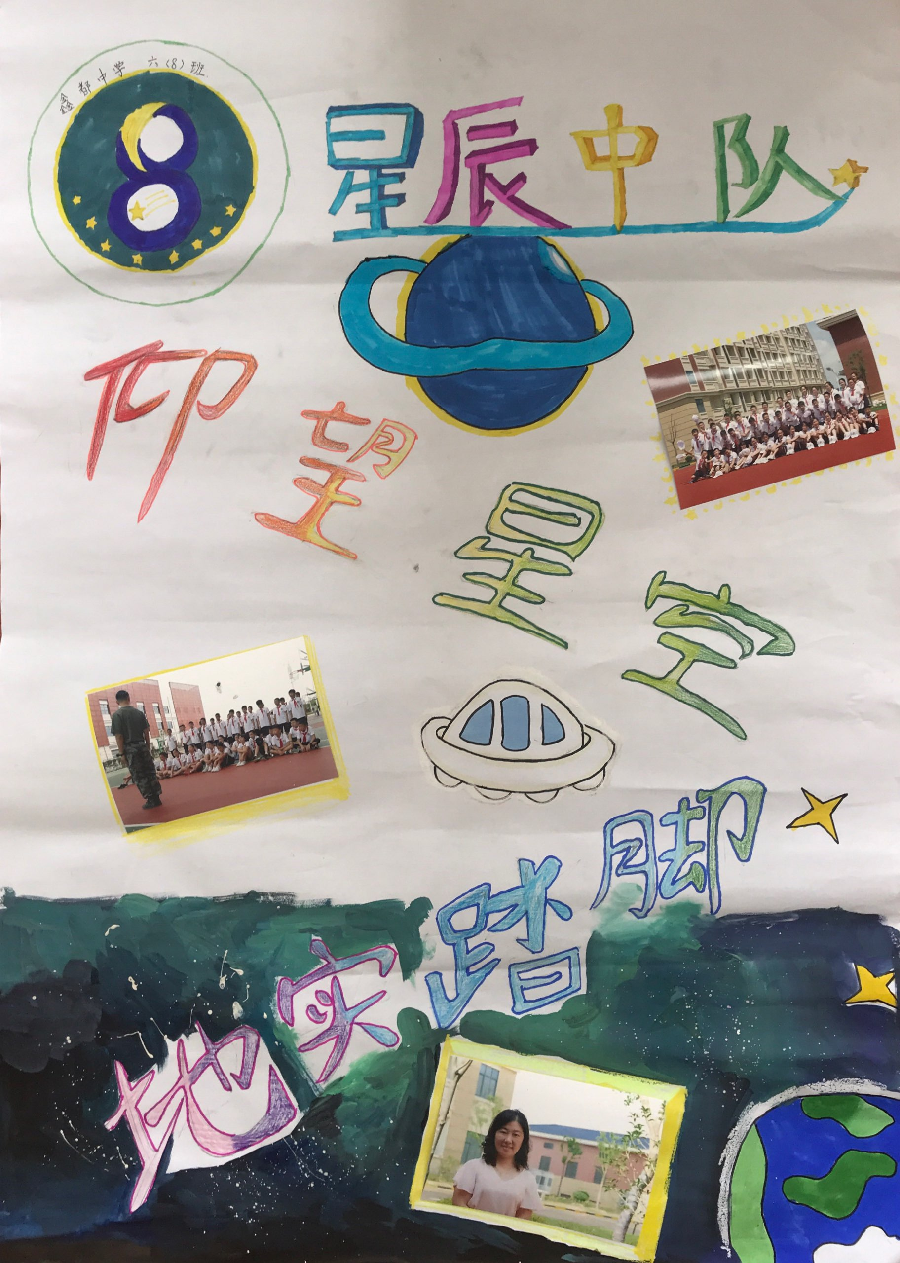 鑫都中学 六(8)班
8
星辰中队
仰望星空
脚踏实地